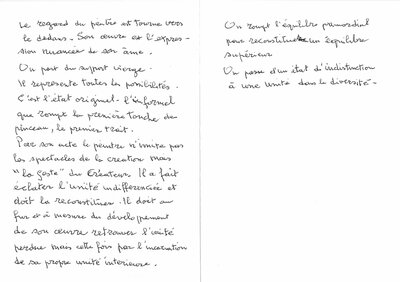 Le regard du peintre est tourné vers
le dedans. Son œuvre est l'expres-
sion nuancée de son âme.
On part du suport vierge.
Il représente toutes les possibilités.
C'est l'état originel. l'informel
que rompt la première touche du
pinceau, le premier trait.
Par son acte le peintre n'imite pas
les spectacles de la création mais
"le geste" du Créateur. Il a fait
éclater l'unité indifférenciée et
doit la reconstituer. Il doit au
fur et à mesure du développement
de son œuvre retrouver l'unité
perdue mais cette fois par l'incarnation
de sa propre unité intérieure.
On rompt l'équilibre primordial
pour reconstituer un équilibre
supérieur
On passe d'un état d'indistinction
à une unité dans la diversité.